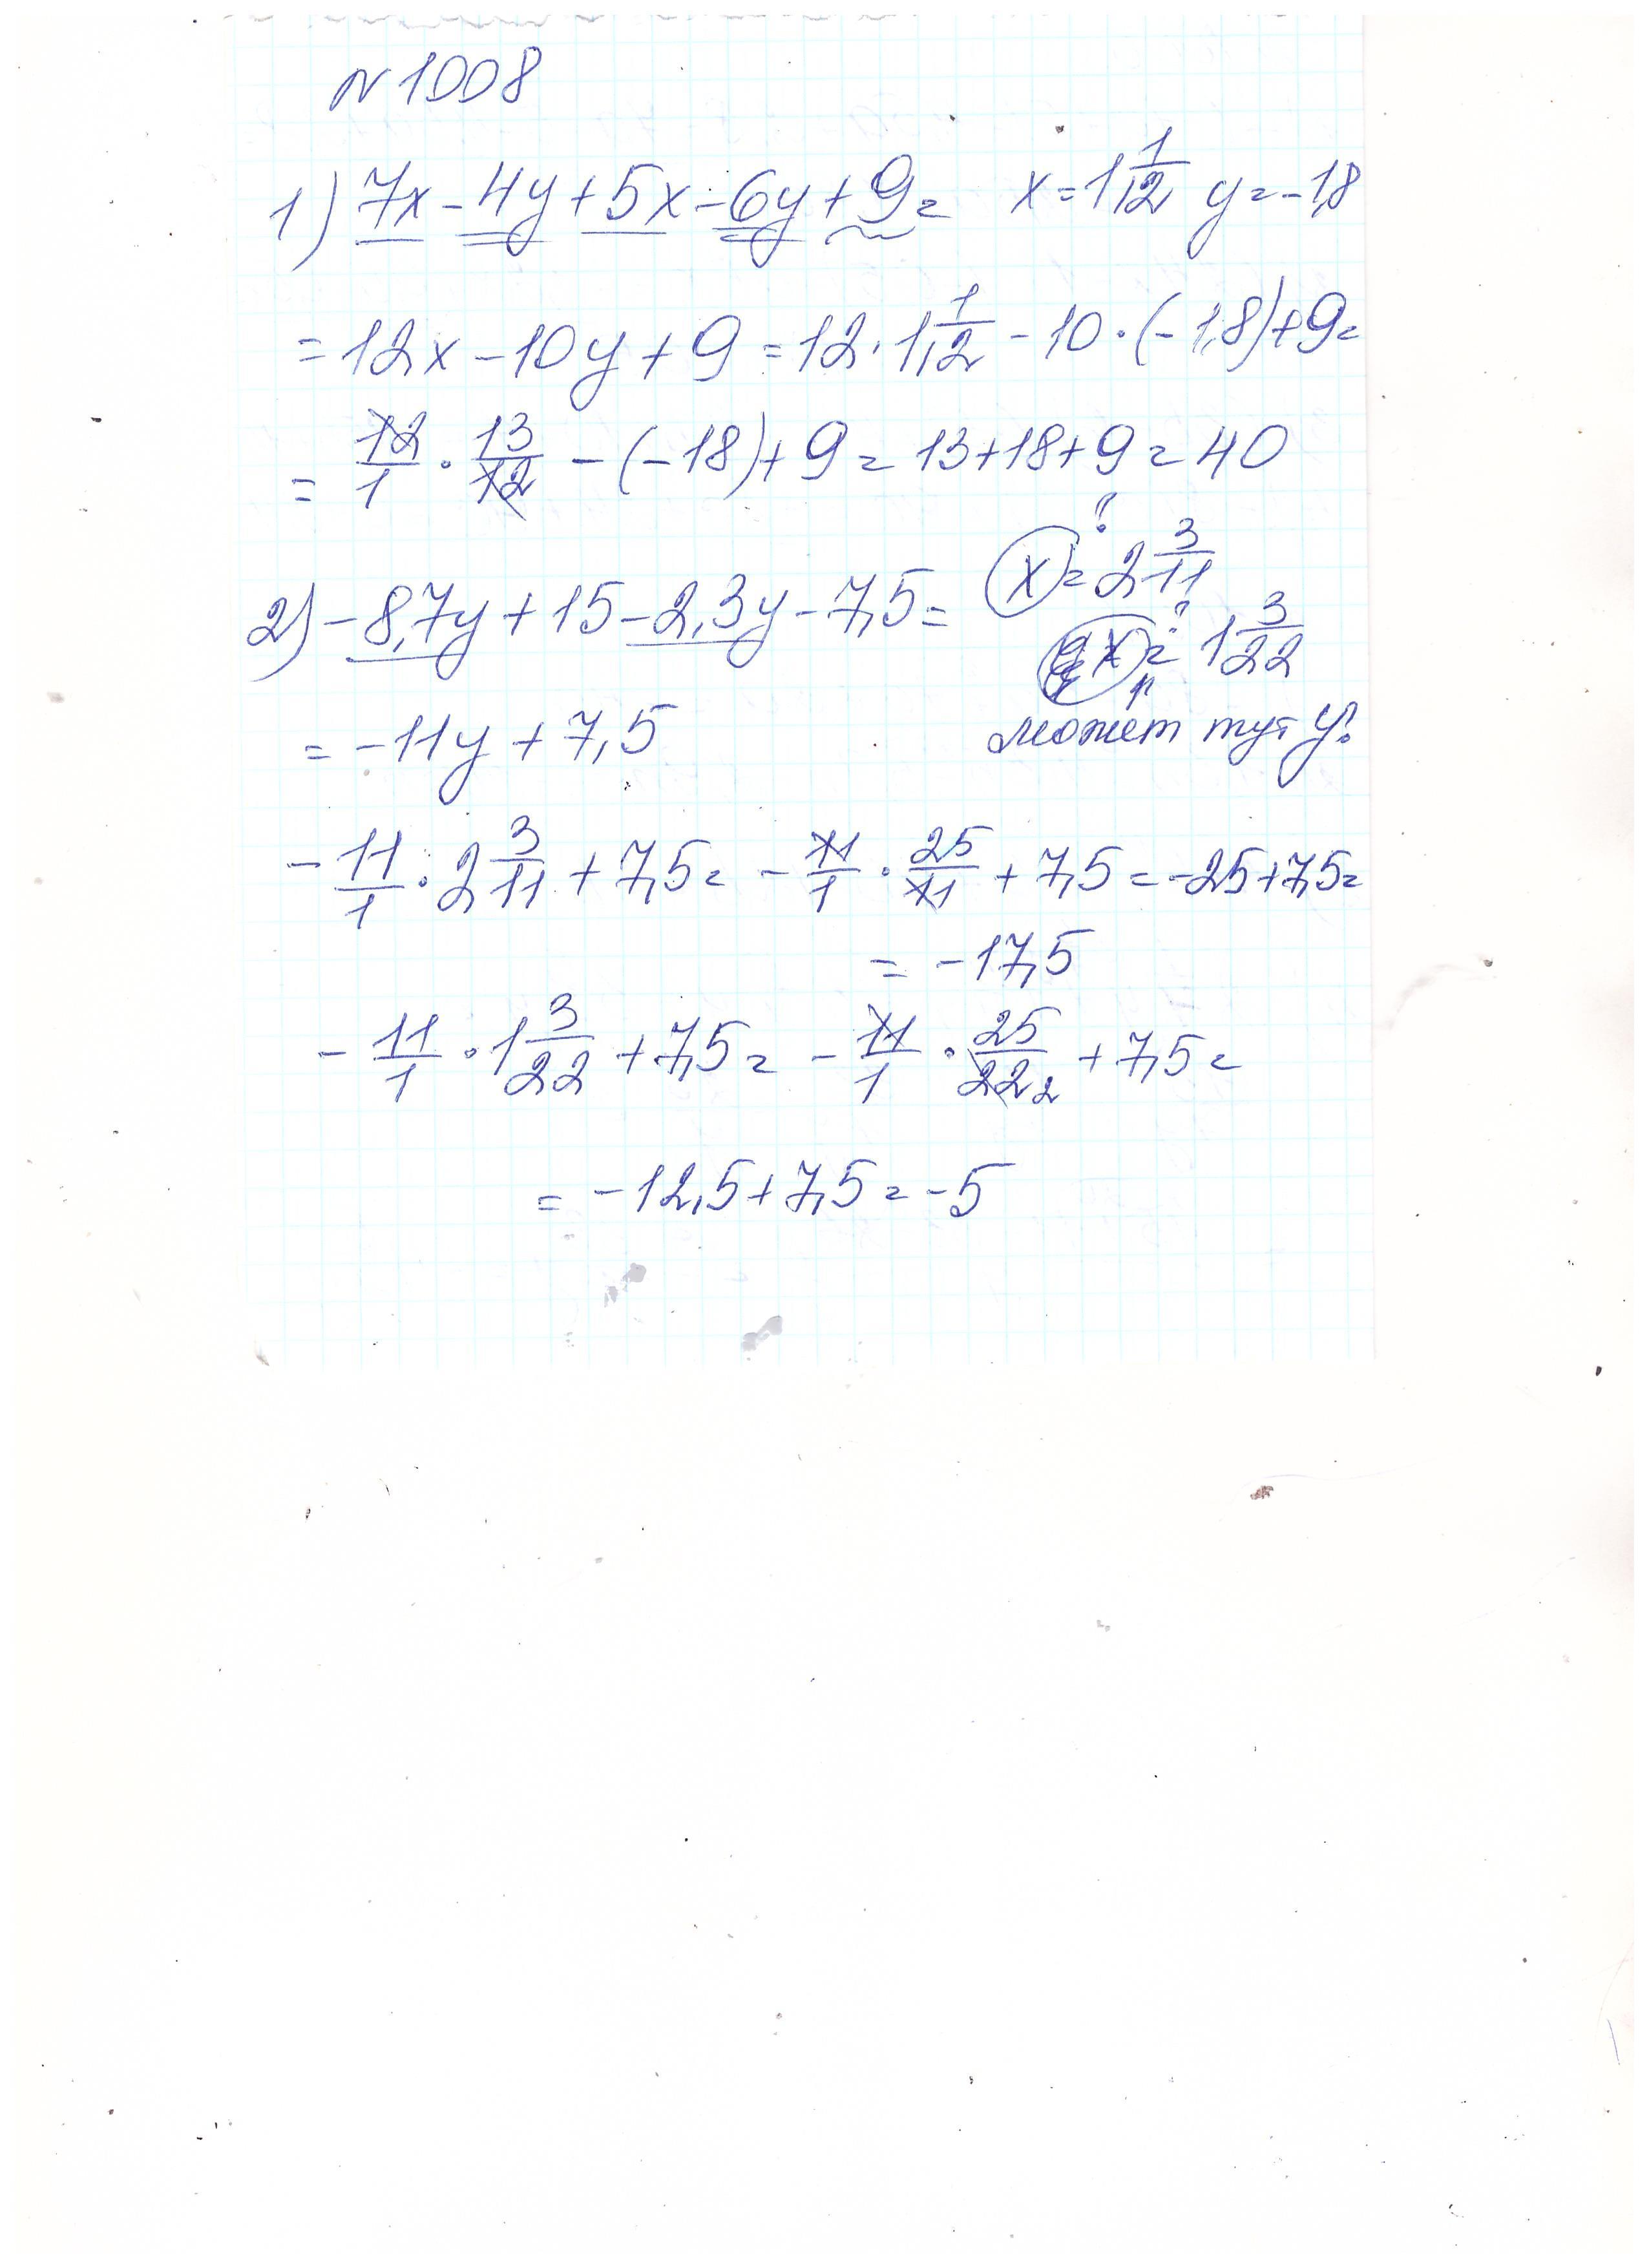 N 1008
1) 7x - 4y + 5x - 6y + 9 = x = 1 1/12 y = -1,8
= 12x - 10y + 9 = 12 · 1 1/12 - 10 · (-1,8) + 9 =
= 12/1 · 13/12 - (-18) + 9 = 13 + 18 + 9 = 40
2) -8,7y + 15 - 2,3y - 7,5 = x = 2 3/11 ?
x = 1 3/22 ?
= -11y + 7,5 может тут y?
- 11/1 · 2 3/11 + 7,5 = - 11/1 · 25/11 + 7,5 = -25 + 7,5 =
= -17,5
- 11/1 · 1 3/22 + 7,5 = - 11/1 · 25/22 2 + 7,5 =
= -12,5 + 7,5 = -5